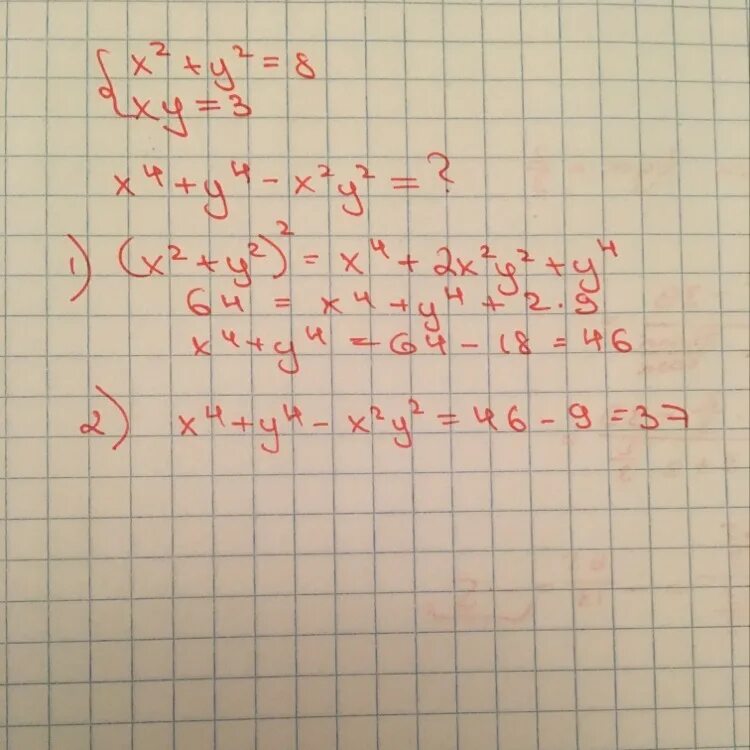 {x² + y² = 8
xy = 3
x⁴ + y⁴ - x²y² = ?
1) (x² + y²)² = x⁴ + 2x²y² + y⁴
64 = x⁴ + y⁴ + 2 · 9
x⁴ + y⁴ = 64 - 18 = 46
2) x⁴ + y⁴ - x²y² = 46 - 9 = 37